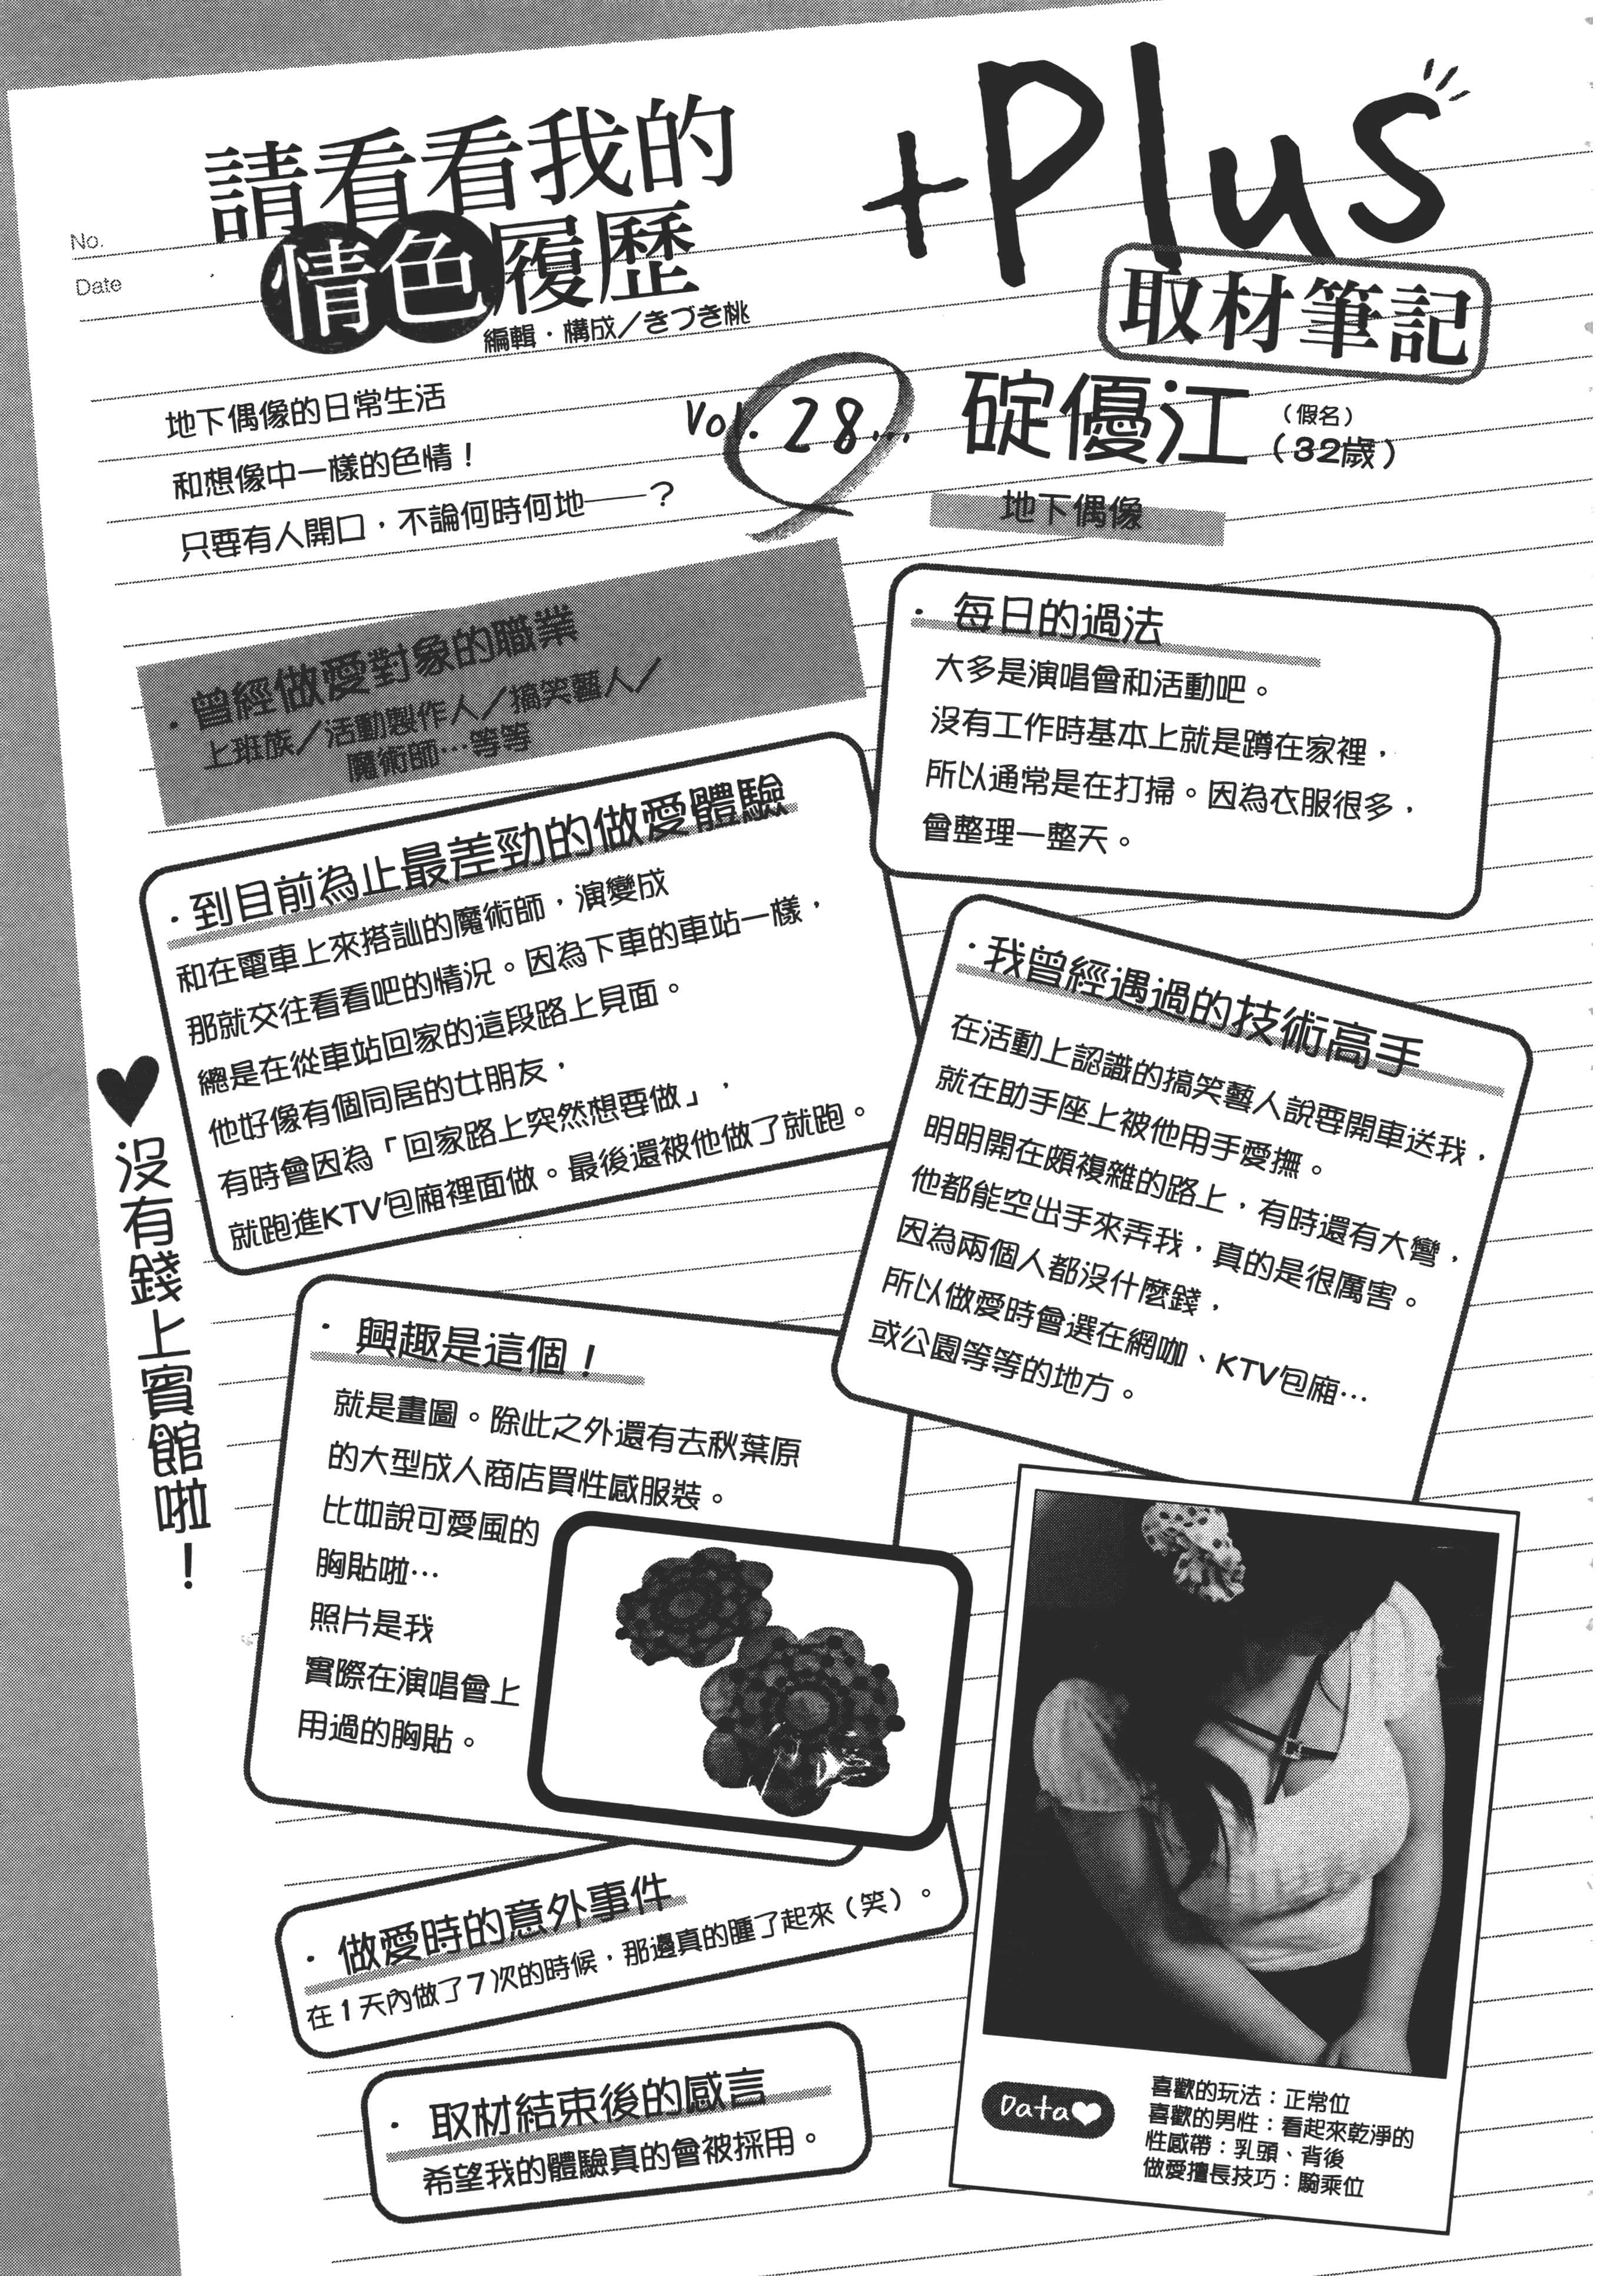 No.
Date
請看看我的
情色履歷
編輯・構成／きづき桃
+Plus
取材筆記
地下偶像的日常生活
和想像中一樣的色情！
只要有人開口，不論何時何地──？
Vol. 28…
碇優江
（假名）
（32歲）
地下偶像
・曾經做愛對象的職業
上班族／活動製作人／搞笑藝人／
魔術師…等等
・每日的過法
大多是演唱會和活動吧。
沒有工作時基本上就是蹲在家裡，
所以通常是在打掃。因為衣服很多，
會整理一整天。
・到目前為止最差勁的做愛體驗
和在電車上來搭訕的魔術師，演變成
那就交往看看吧的情況。因為下車的車站一樣，
總是在從車站回家的這段路上見面。
他好像有個同居的女朋友，
有時會因為「回家路上突然想要做」，
就跑進KTV包廂裡面做。最後還被他做了就跑。
・我曾經遇過的技術高手
在活動上認識的搞笑藝人說要開車送我，
就在助手座上被他用手愛撫。
明明開在頗複雜的路上，有時還有大彎，
他都能空出手來弄我，真的是很厲害。
因為兩個人都沒什麼錢，
所以做愛時會選在網咖、KTV包廂…
或公園等等的地方。
♥沒有錢上賓館啦！
・興趣是這個！
就是畫圖。除此之外還有去秋葉原
的大型成人商店買性感服裝。
比如說可愛風的
胸貼啦…
照片是我
實際在演唱會上
用過的胸貼。
・做愛時的意外事件
在1天內做了7次的時候，那邊真的腫了起來（笑）。
・取材結束後的感言
希望我的體驗真的會被採用。
Data♥
喜歡的玩法：正常位
喜歡的男性：看起來乾淨的
性感帶：乳頭、背後
做愛擅長技巧：騎乘位